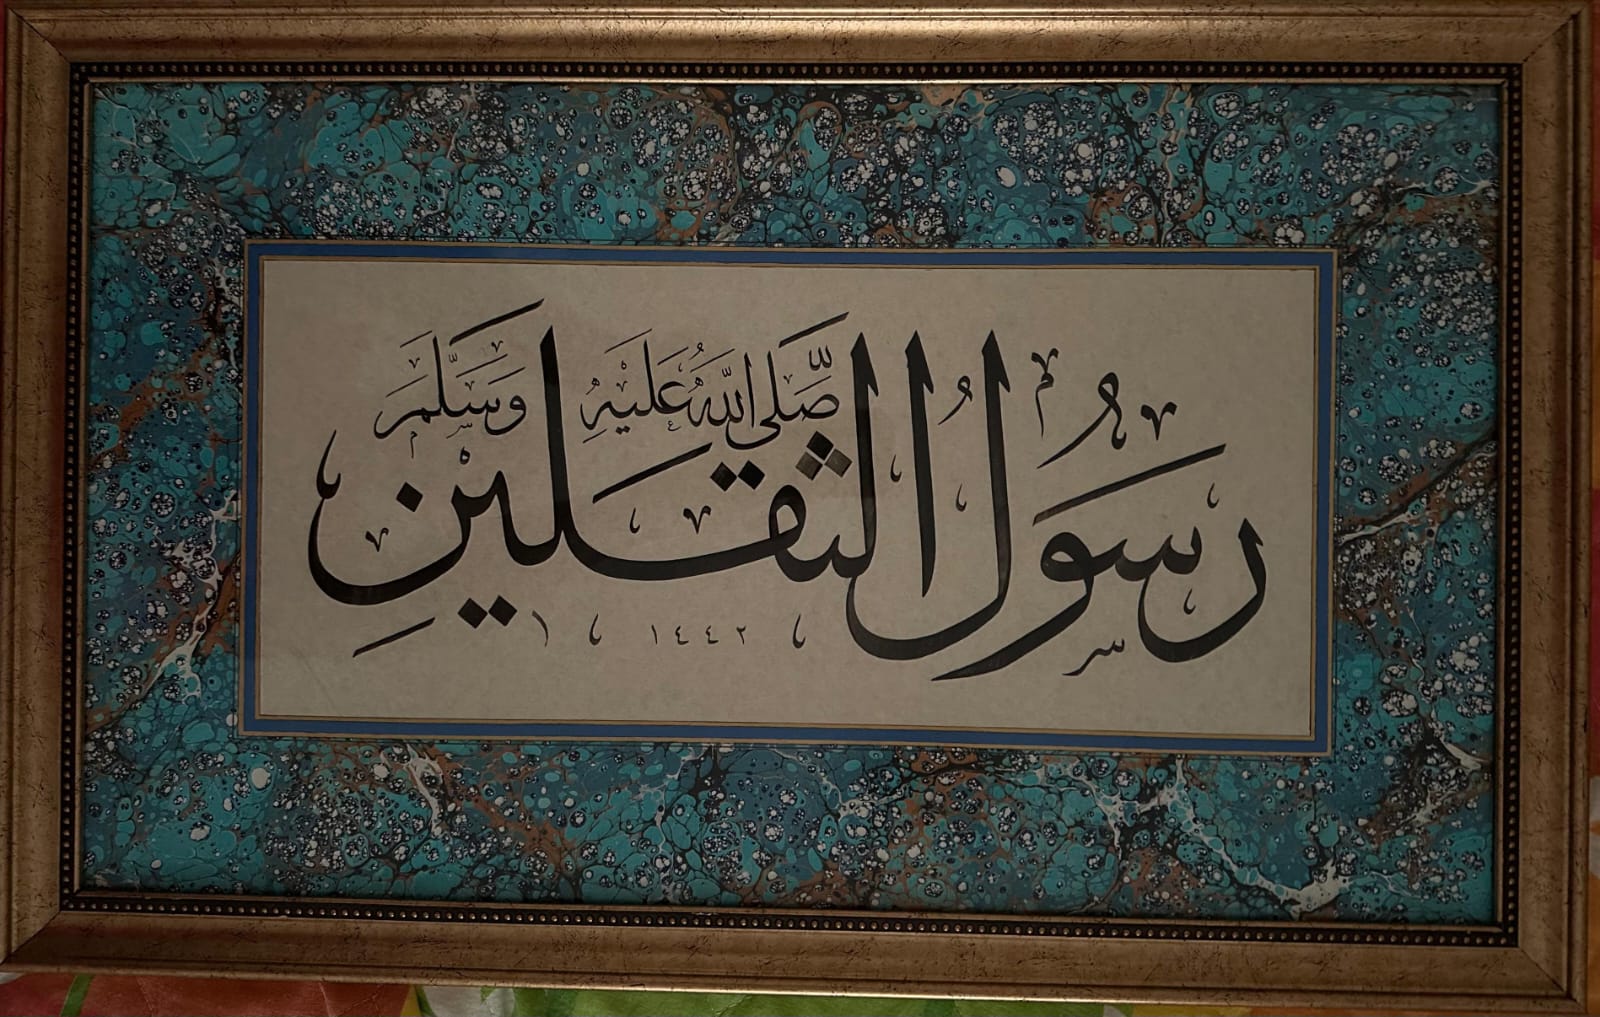 رَسُولُ الثَّقَلَيْنِ
صَلَّى اللهُ عَلَيْهِ وَسَلَّمَ
١٤٤٢